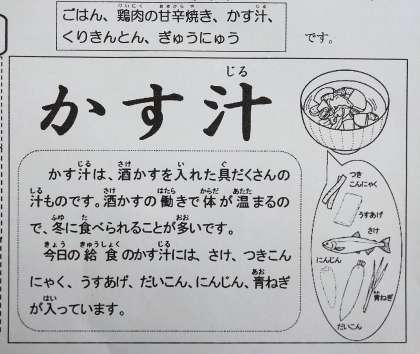 ごはん、鶏肉の甘辛焼き、かす汁、
くりきんとん、ぎゅうにゅう
です。
かす汁
かす汁は、酒かすを入れた具だくさんの
汁ものです。酒かすの働きで体が温まるの
で、冬に食べられることが多いです。
今日の給食のかす汁には、さけ、つきこん
にゃく、うすあげ、だいこん、にんじん、青ねぎ
が入っています。
つき
こんにゃく
うすあげ
さけ
にんじん
青ねぎ
だいこん